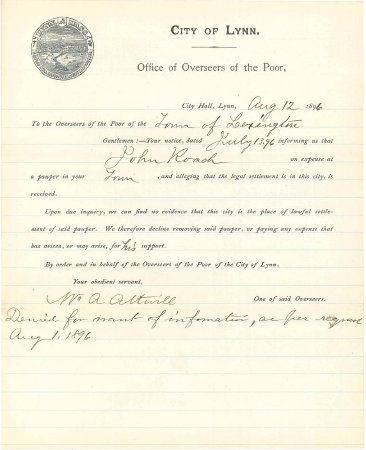 CITY OF LYNN.
Office of Overseers of the Poor,
City Hall, Lynn, Aug 12 1896
To the Overseers of the Poor of the Town of Lexington
Gentlemen:—Your notice, dated July 13.96 informing us that
John Roach on expense at
a pauper in your Town, and alleging that the legal settlement is in this city, is
received.
Upon due inquiry, we can find no evidence that this city is the place of lawful settle-
ment of said pauper. We therefore decline removing said pauper, or paying any expense that
has arisen, or may arise, for his support.
By order and in behalf of the Overseers of the Poor of the City of Lynn.
Your obedient servant,
Wm A Attwill One of said Overseers.
Denied for want of infomation, as per request
Aug 1, 1896